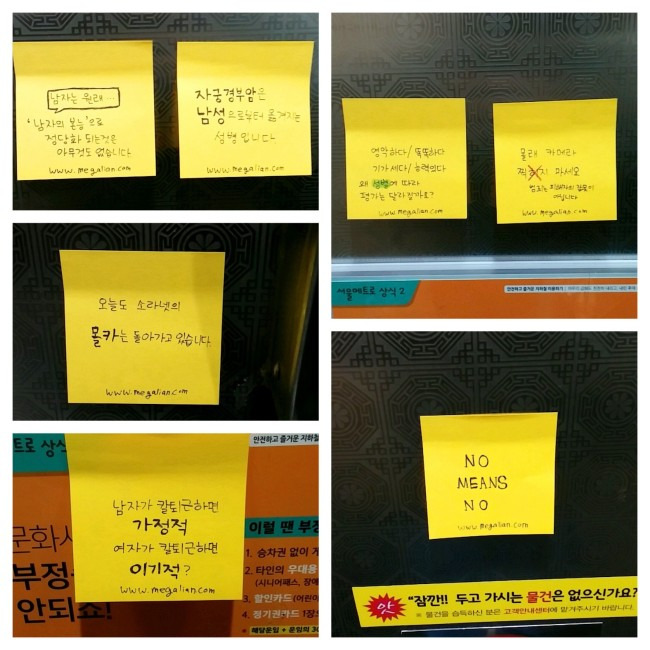 남자는 원래…
'남자의 본능'으로
정당화 되는것은
아무것도 없습니다
www.megalian.com
자궁경부암은
남성으로부터 옮겨지는
성병입니다
www.megalian.com
영악하다/똑똑하다
기가세다/능력있다
왜 성별에 따라
평가는 달라질까요?
www.megalian.com
몰래 카메라
찍지 마세요
범죄는 피해자의 잘못이
아닙니다
www.megalian.com
서울메트로 상식 2
안전하고 즐거운 지하철 이용하기
오늘도 소라넷의
몰카는 돌아가고 있습니다
www.megalian.com
메트로 상식
안전하고 즐거운 지하철
남자가 칼퇴근하면
가정적
여자가 칼퇴근하면
이기적?
www.megalian.com
문화시
부정
안되죠!
이럴 땐 부정
1. 승차권 없이
2. 타인의 우대용
(시니어패스, 장애
3. 할인카드(어린이
4. 정기권카드 1장
NO
MEANS
NO
www.megalian.com
앗
"잠깐!! 두고 가시는 물건은 없으신가요?
※ 물건을 습득하신 분은 고객안내센터에 맡겨주시기 바랍니다.